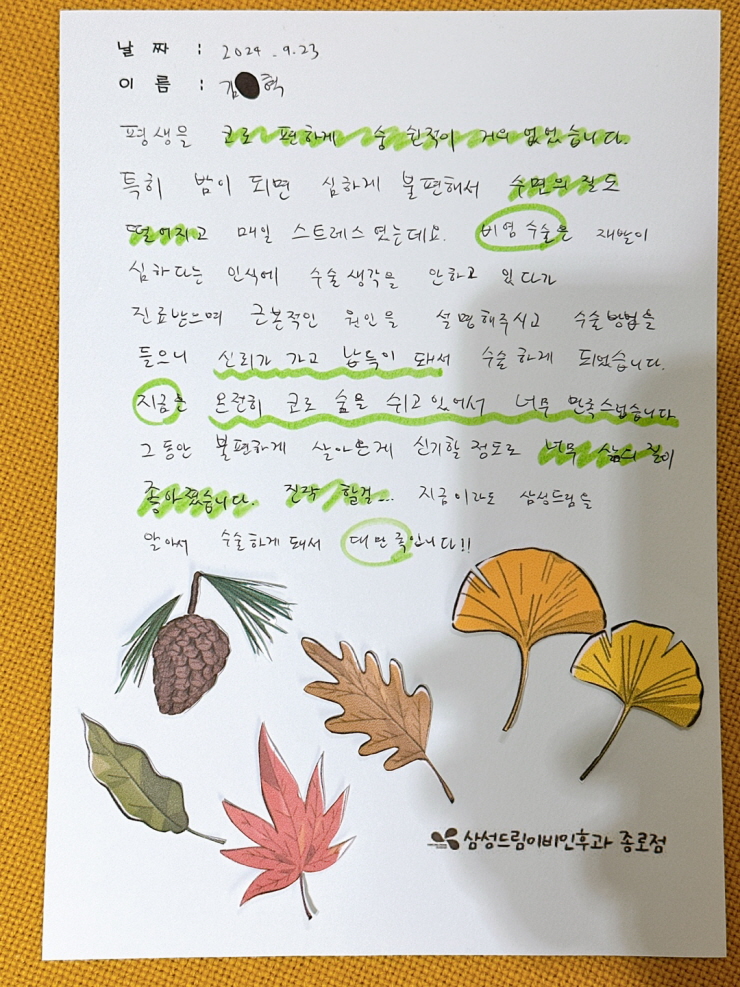 날 짜 : 2024. 9. 23
이 름 : 김 혁
평생을 코로 편하게 숨 쉰적이 거의 없었습니다.
특히 밤이 되면 심하게 불편해서 수면의 질도
떨어지고 매일 스트레스 였는데요. 비염 수술은 재발이
심하다는 인식에 수술 생각을 안하고 있다가
진료받으며 근본적인 원인을 설명해주시고 수술방법을
들으니 신뢰가 가고 납득이 돼서 수술 하게 되었습니다.
지금은 온전히 코로 숨을 쉬고 있어서 너무 만족스럽습니다
그동안 불편하게 살아온게 신기할 정도로 너무 삶의 질이
좋아졌습니다. 진작 할걸... 지금이라도 삼성드림을
알아서 수술하게 돼서 대만족입니다!!
삼성드림이비인후과 종로점